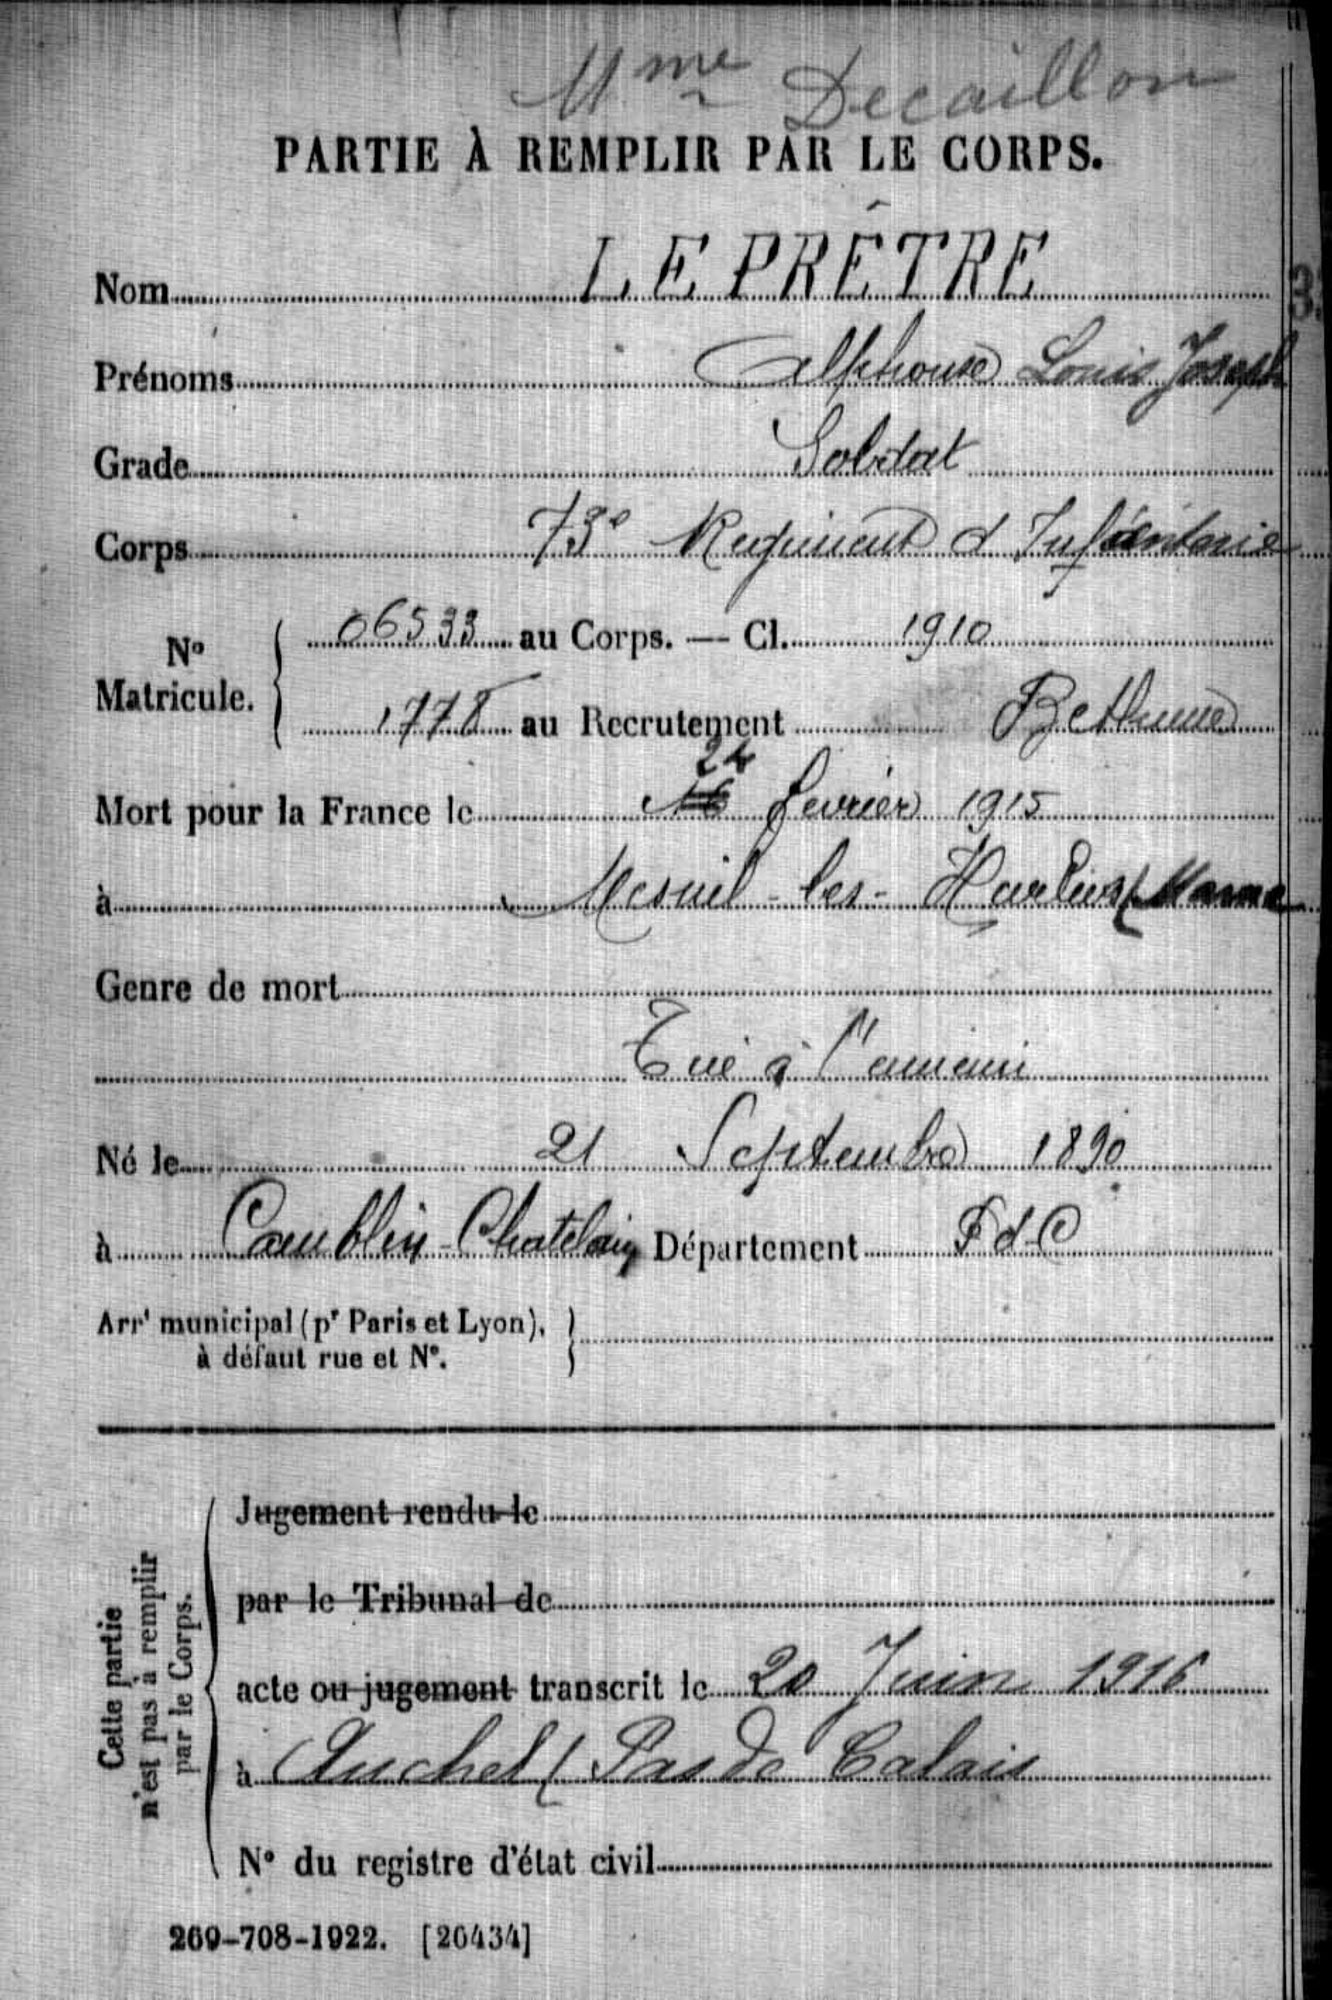 Mme Decaillon
PARTIE À REMPLIR PAR LE CORPS.
Nom LE PRÊTRE
Prénoms Alphonse Louis Joseph
Grade Soldat
Corps 73e Regiment d Infanterie
No Matricule. 06533 au Corps. — Cl. 1910
1778 au Recrutement Bethune
24
Mort pour la France le 16 fevrier 1915
à Mesnil-les-Hurlus (Marne
Genre de mort
Tué à l'ennemi
Né le 21 Septembre 1890
à Camblin-Chatelain Département P d C
Arrt municipal (pr Paris et Lyon),
à défaut rue et No.
Cette partie
n'est pas à remplir
par le Corps.
Jugement rendu le
par le Tribunal de
acte ou jugement transcrit le 20 Juin 1916
à Auchel (Pas de Calais
No du registre d'état civil
269-708-1922. [26434]